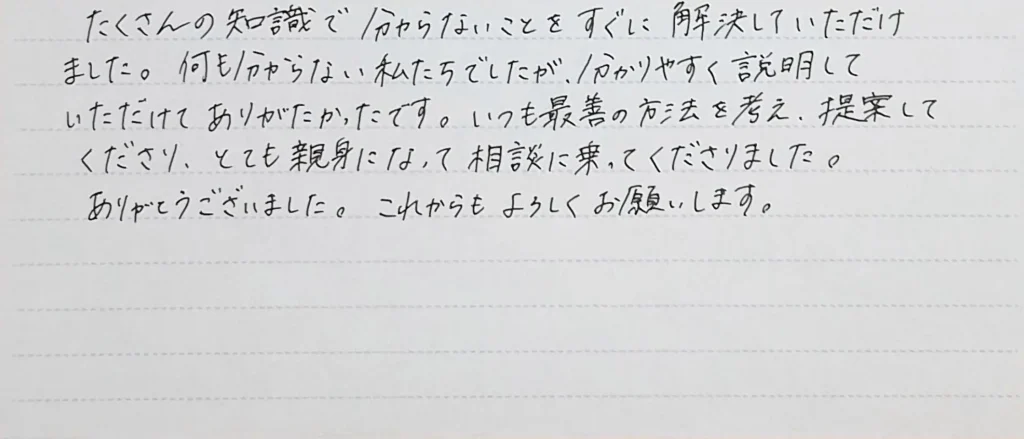 たくさんの知識で分からないことをすぐに解決していただけ
ました。何も分からない私たちでしたが、分かりやすく説明して
いただけてありがたかったです。いつも最善の方法を考え、提案して
くださり、とても親身になって相談に乗ってくださりました。
ありがとうございました。これからもよろしくお願いします。